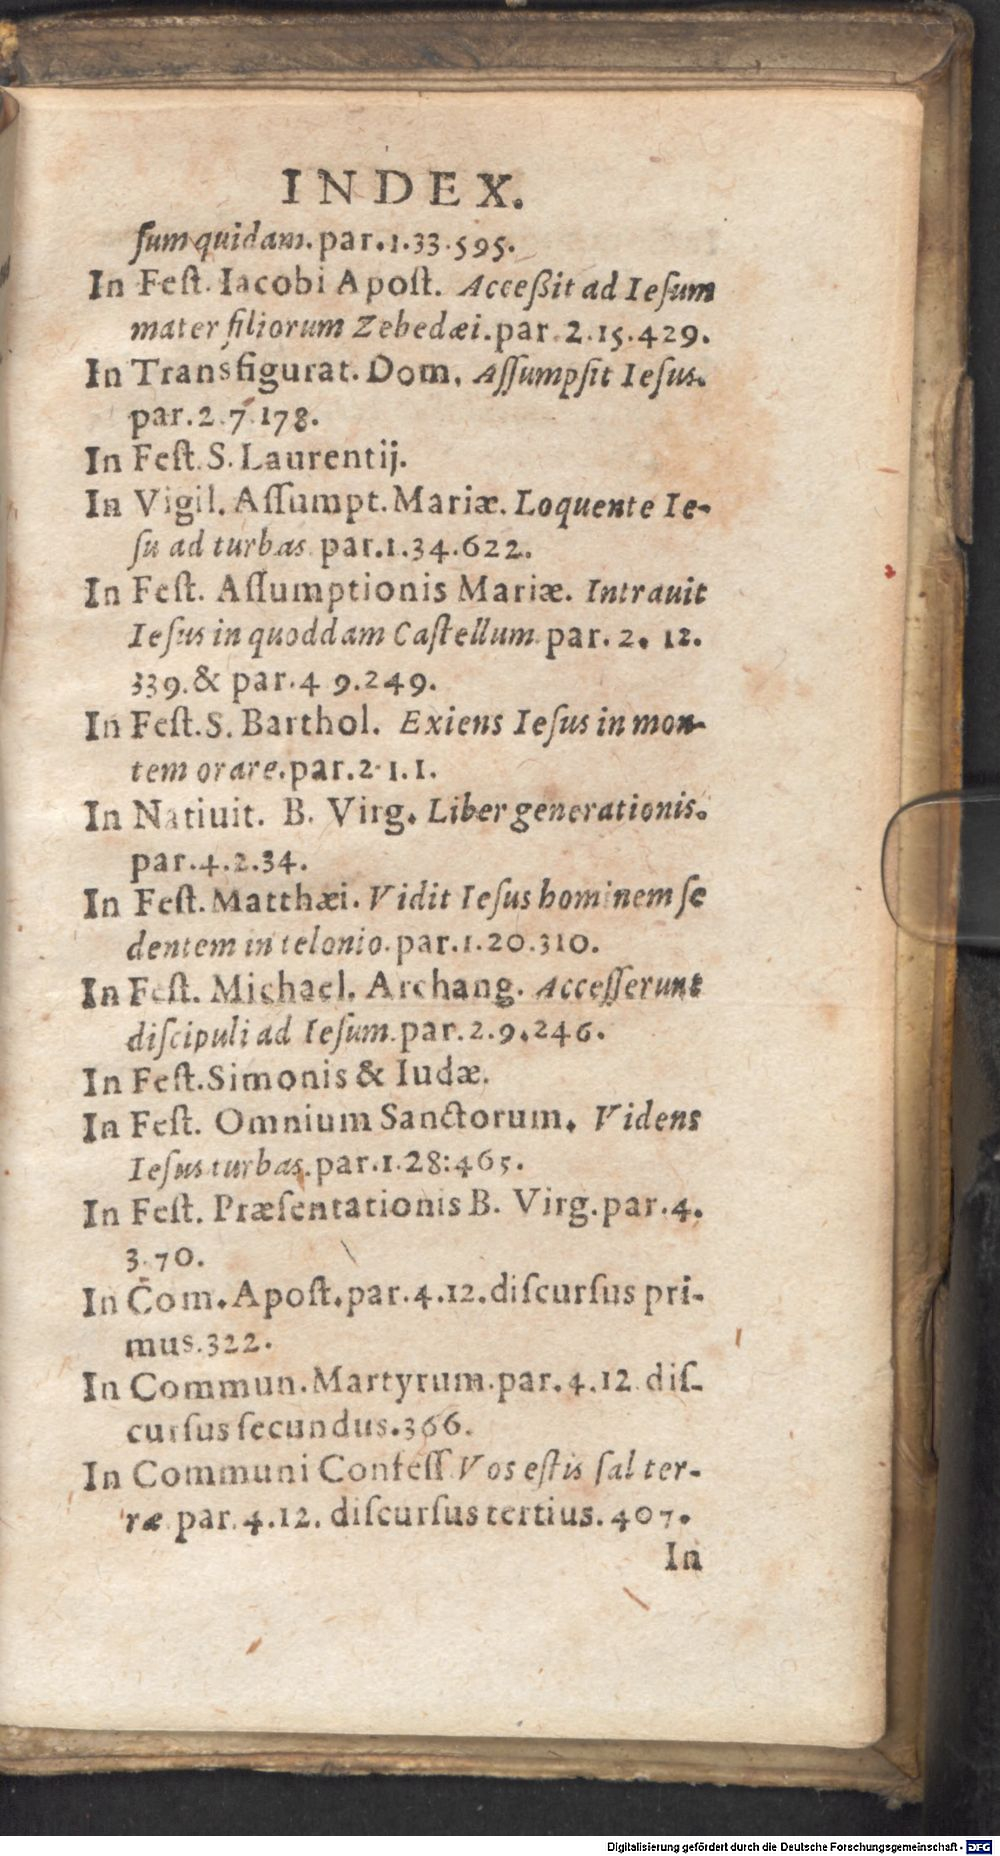 INDEX.
ſum quidam. par. 1. 33. 595.
In Feſt. Iacobi Apoſt. Acceßit ad Ieſum
mater filiorum Zebedæi. par. 2. 15. 429.
In Transfigurat. Dom. Aſſumpſit Ieſus.
par. 2. 7. 178.
In Feſt. S. Laurentij.
In Vigil. Aſſumpt. Mariæ. Loquente Ie-
ſu ad turbas. par. 1. 34. 622.
In Feſt. Aſſumptionis Mariæ. Intrauit
Ieſus in quoddam Caſtellum. par. 2. 12.
339. & par. 4 9. 249.
In Feſt. S. Barthol. Exiens Ieſus in mon-
tem orare. par. 2. 1. 1.
In Natiuit. B. Virg. Liber generationis.
par. 4. 2. 34.
In Feſt. Matthæi. Vidit Ieſus hominem ſe
dentem in telonio. par. 1. 20. 310.
In Feſt. Michael. Archang. Acceſſerunt
diſcipuli ad Ieſum. par. 2. 9. 246.
In Feſt. Simonis & Iudæ.
In Feſt. Omnium Sanctorum. Videns
Ieſus turbas. par. 1. 28: 465.
In Feſt. Præſentationis B. Virg. par. 4.
3. 70.
In Com. Apoſt. par. 4. 12. diſcurſus pri-
mus. 322.
In Commun. Martyrum. par. 4. 12. diſ-
curſus ſecundus. 366.
In Communi Confeſſ. Vos eſtis ſal ter-
ræ. par. 4. 12. diſcurſus tertius. 407.
In
Digitalisierung gefördert durch die Deutsche Forschungsgemeinschaft - DFG